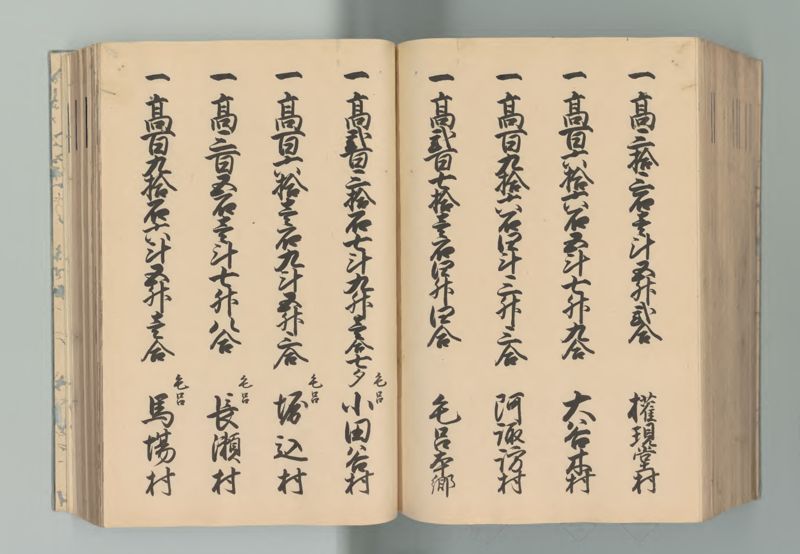 一高三拾三石壱斗五升弐合 権現堂村
一高百六拾六石五斗七升九合 大谷木村
一高百九拾六石四斗三升三合 阿諏訪村
一高弐百七拾壱石四升四合 毛呂本郷
一高弐百三拾石七斗九升壱合七夕 毛呂小田谷村
一高百六拾壱石九斗五升三合 毛呂堀込村
一高三百五石壱斗七升八合 毛呂長瀬村
一高百九拾石六斗五升壱合 毛呂馬場村